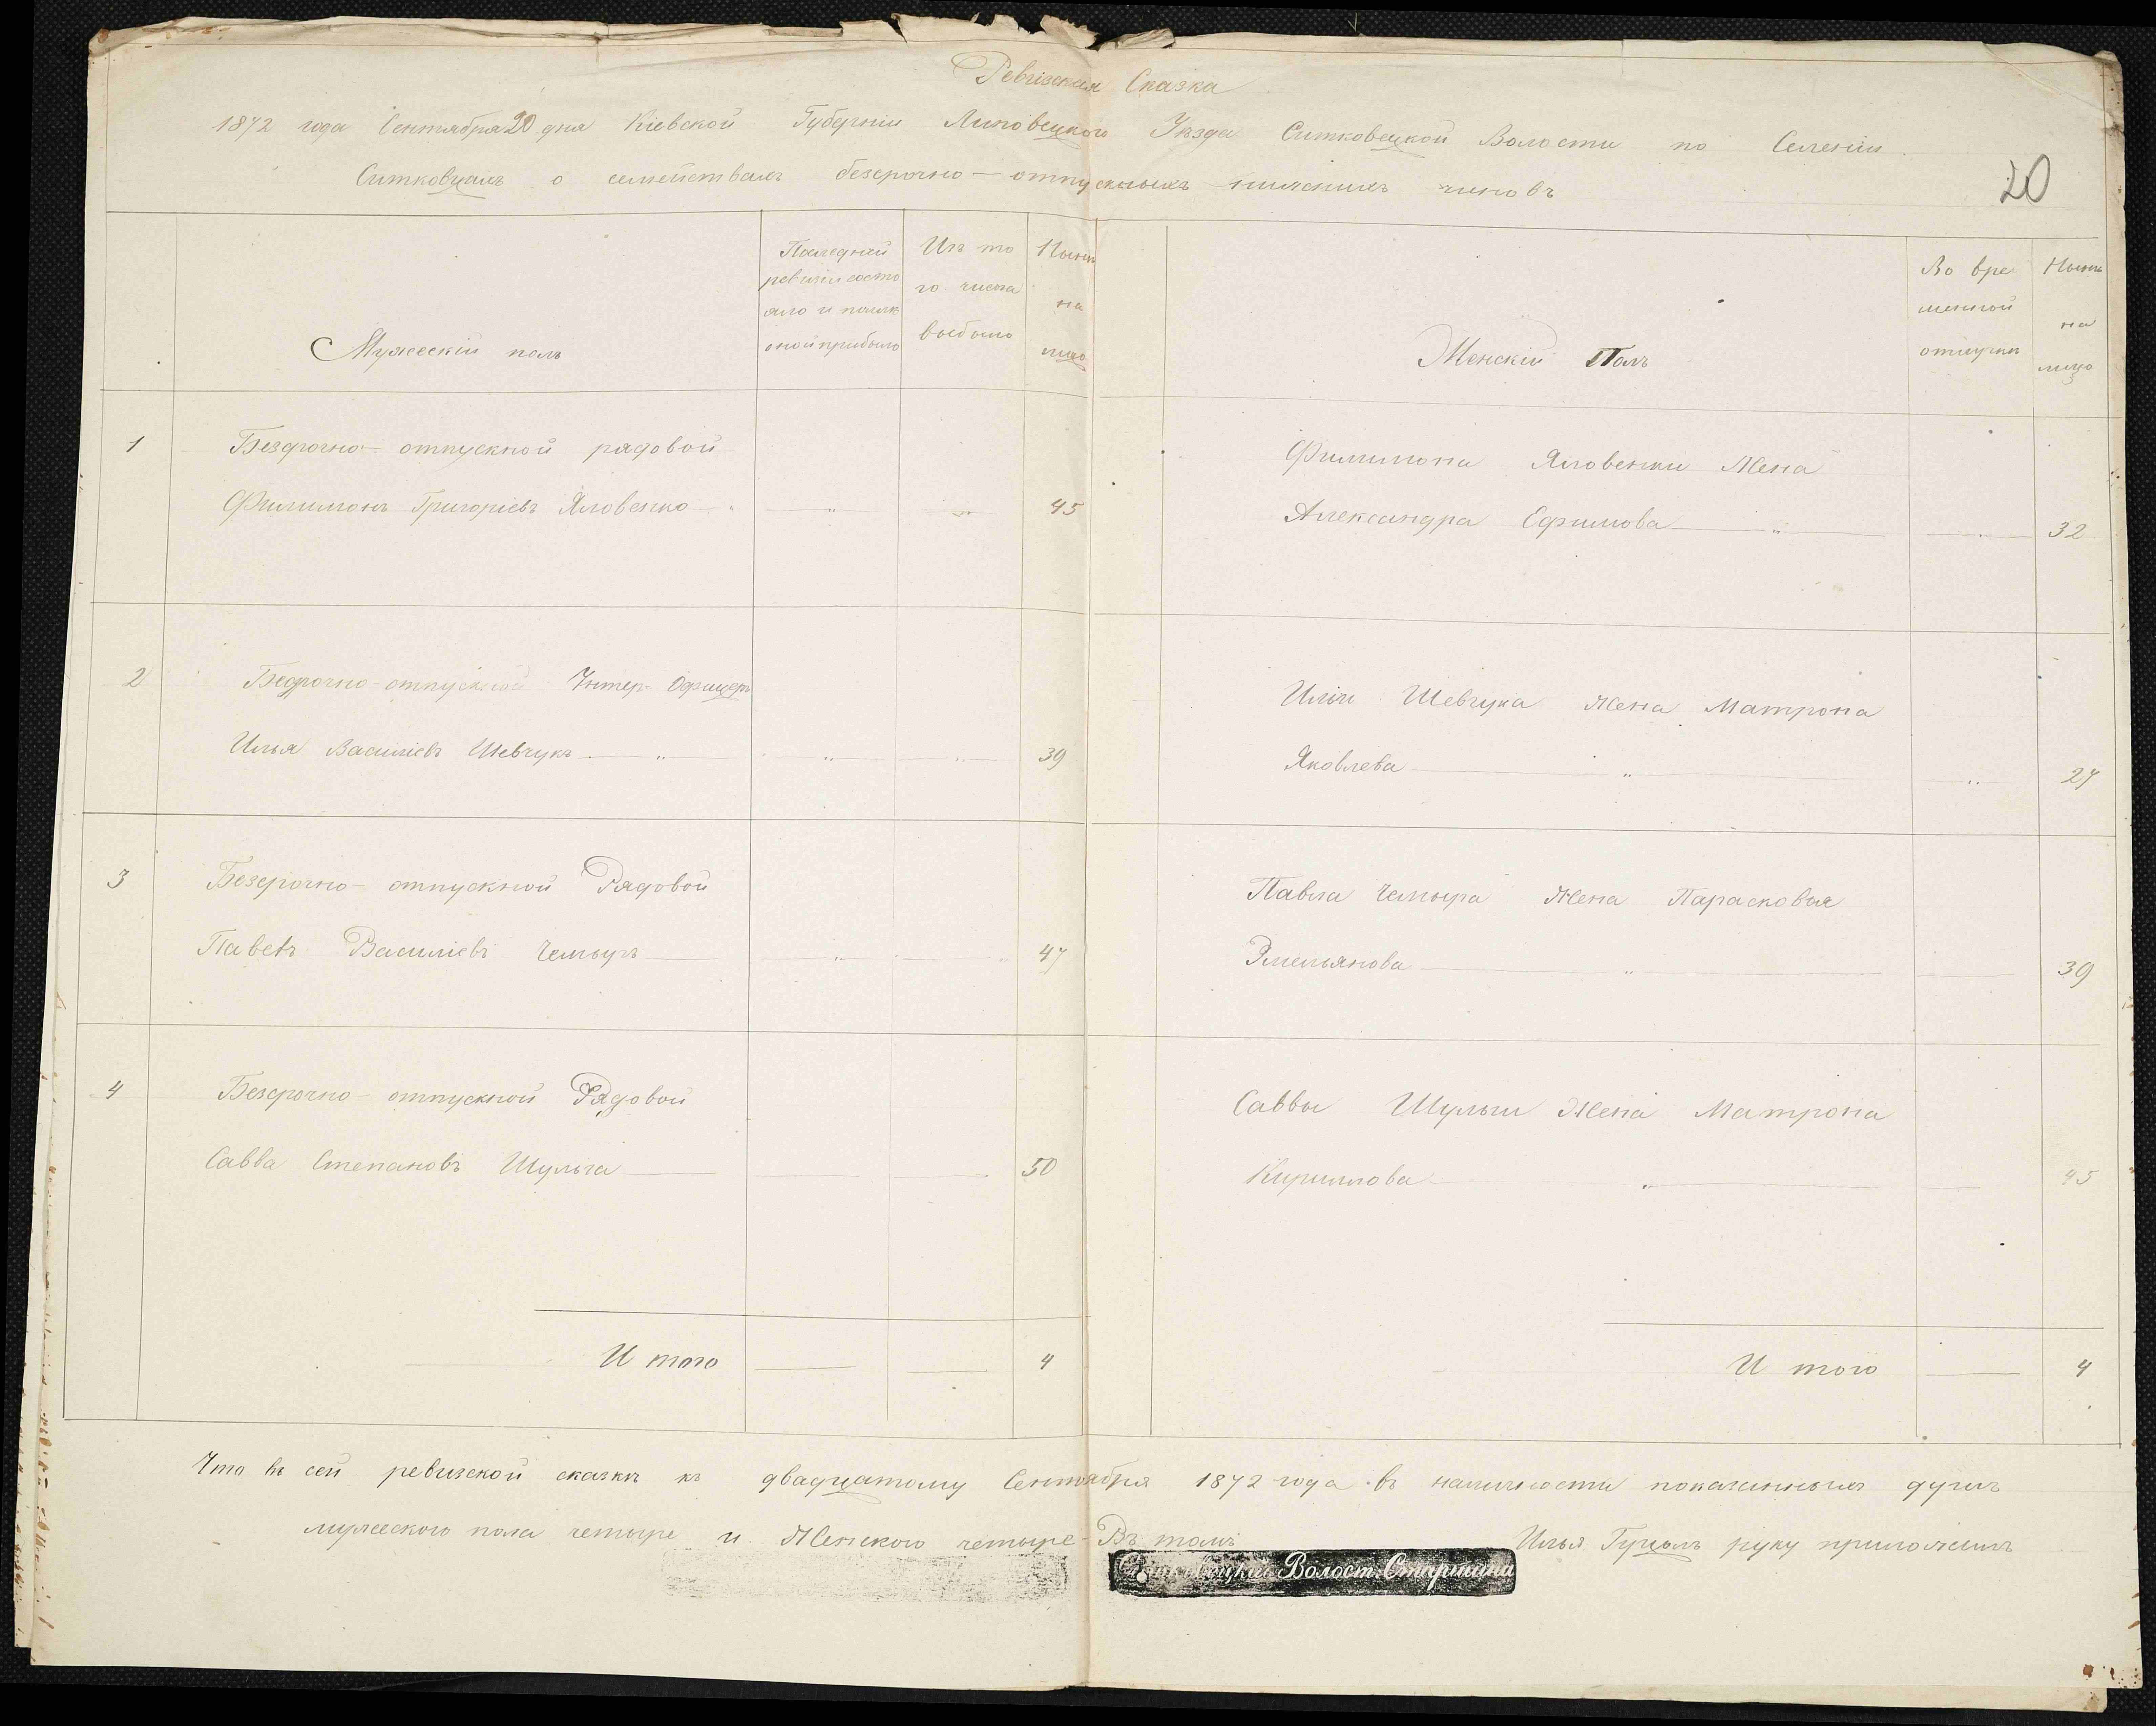 Ревизская Сказка
1872 года Сентября 20 дня Кіевской Губерніи Липовецкого Уѣзда Ситковецкой Волости по Селенію
Ситковцамъ о семействахъ безсрочно-отпускныхъ нижнихъ чиновъ
20
Мужескій полъ
Последней
ревизіи состо
яло и послѣ
оной прибыло
Изъ то
го числа
выбыло
Нынѣ
на
лицо
Женскій Полъ
Во вре
менной
отлучкѣ
Нынѣ
на
лицо
1 Безсрочно-отпускной рядовой
Филимонъ Григоріевъ Яловенко 45
Филимона Яловенки Жена
Александра Ефимова 32
2 Безсрочно-отпускной Унтер-Офицеръ
Илья Василіевъ Шевчукъ 39
Иліи Шевчука Жена Матрона
Яковлева 27
3 Безсрочно-отпускной Рядовой
Павелъ Василіевъ Чемыръ 47
Павла Чемыра Жена Парасковья
Эмельянова 39
4 Безсрочно-отпускной Рядовой
Савва Степановъ Шульга 50
Саввы Шульги Жена Матрона
Кириллова 45
И того 4
И того 4
Что въ сей ревизской сказкѣ къ двадцатому Сентября 1872 года въ наличности показанныхъ душъ
мужеского пола четыре и Женского четыре Въ томъ Илья Гуцолъ руку приложилъ
Ситковецкій Волост. Старшина